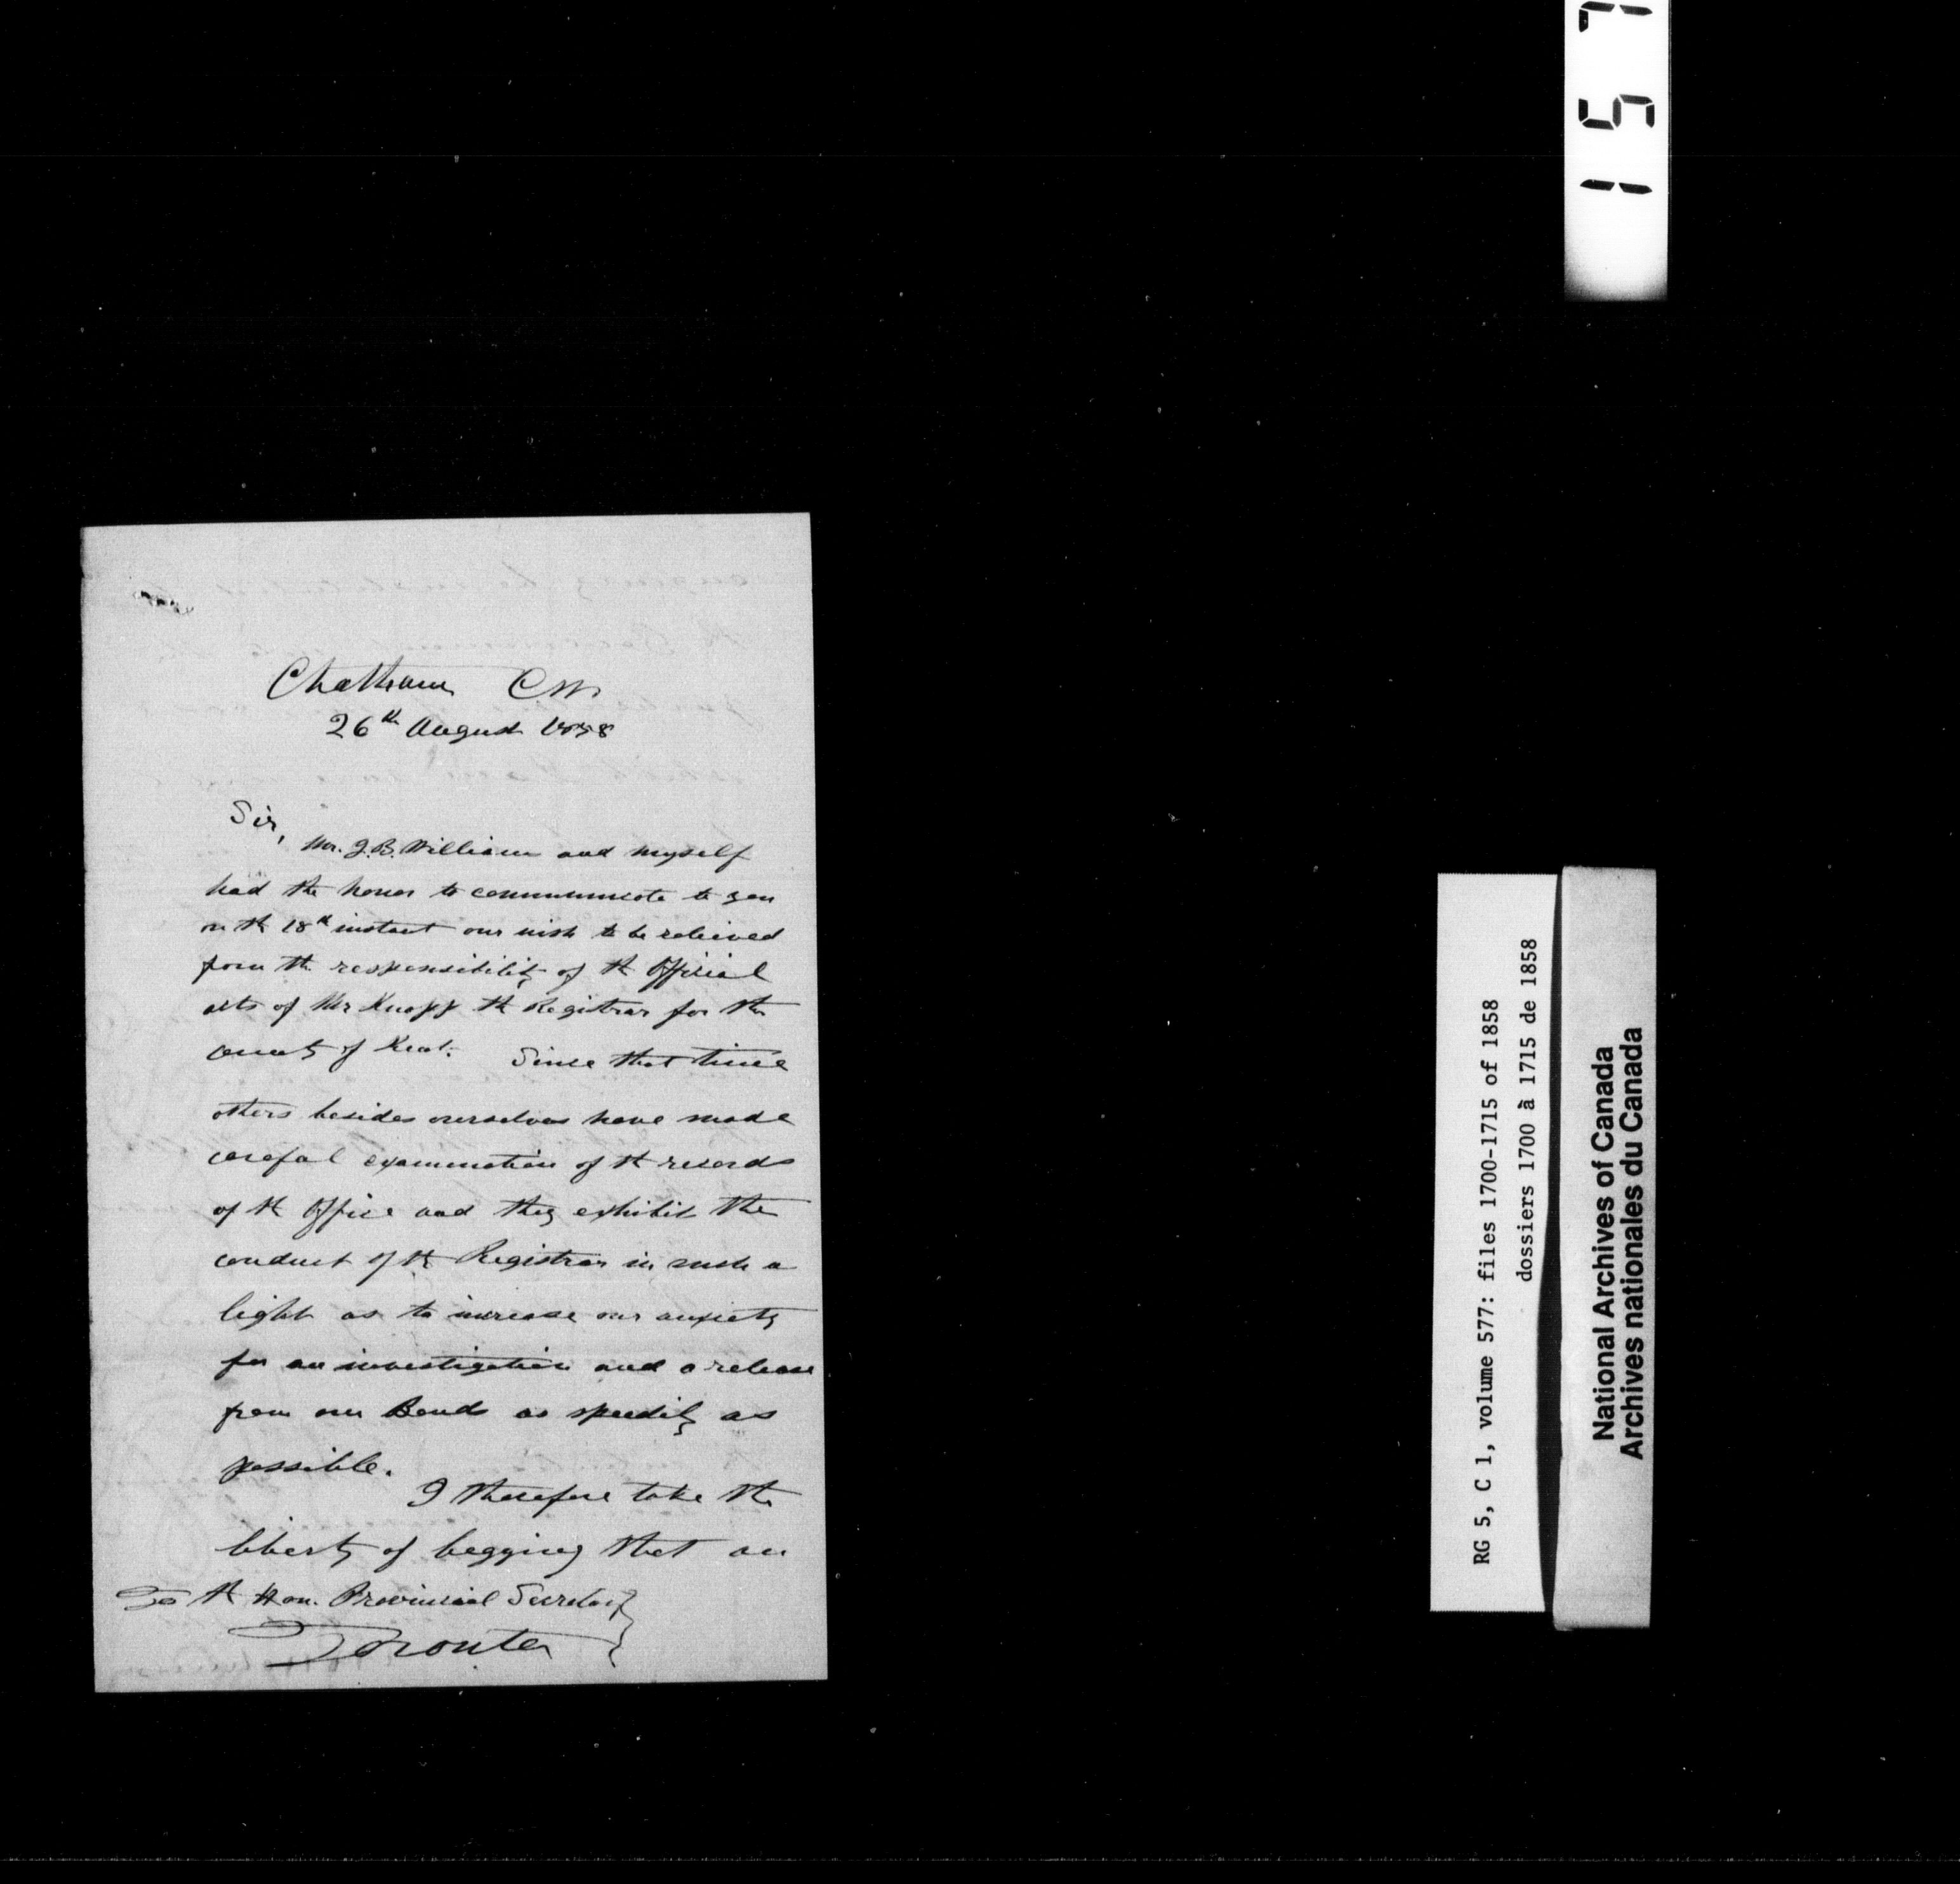 Chatham C W.
26th August 1858
Sir,
Mr. J. B. William and myself
had the honor to communicate to you
on th 18th instant our wish to be relieved
from the responsibility of th Official
acts of Mr Knapp th Registrar for the
county of Kent. Since that time
others besides ourselves have made
careful examination of th records
of th Office and they exhibit the
conduct of th Registrar in such a
light as to increase our anxiety
for an investigation and a release
from our Bonds as speedily as
possible.
I therefore take the
liberty of begging that an
To th Hon. Provincial Secretary
Toronto
157
RG 5, C 1, volume 577: files 1700-1715 of 1858
dossiers 1700 à 1715 de 1858
National Archives of Canada
Archives nationales du Canada